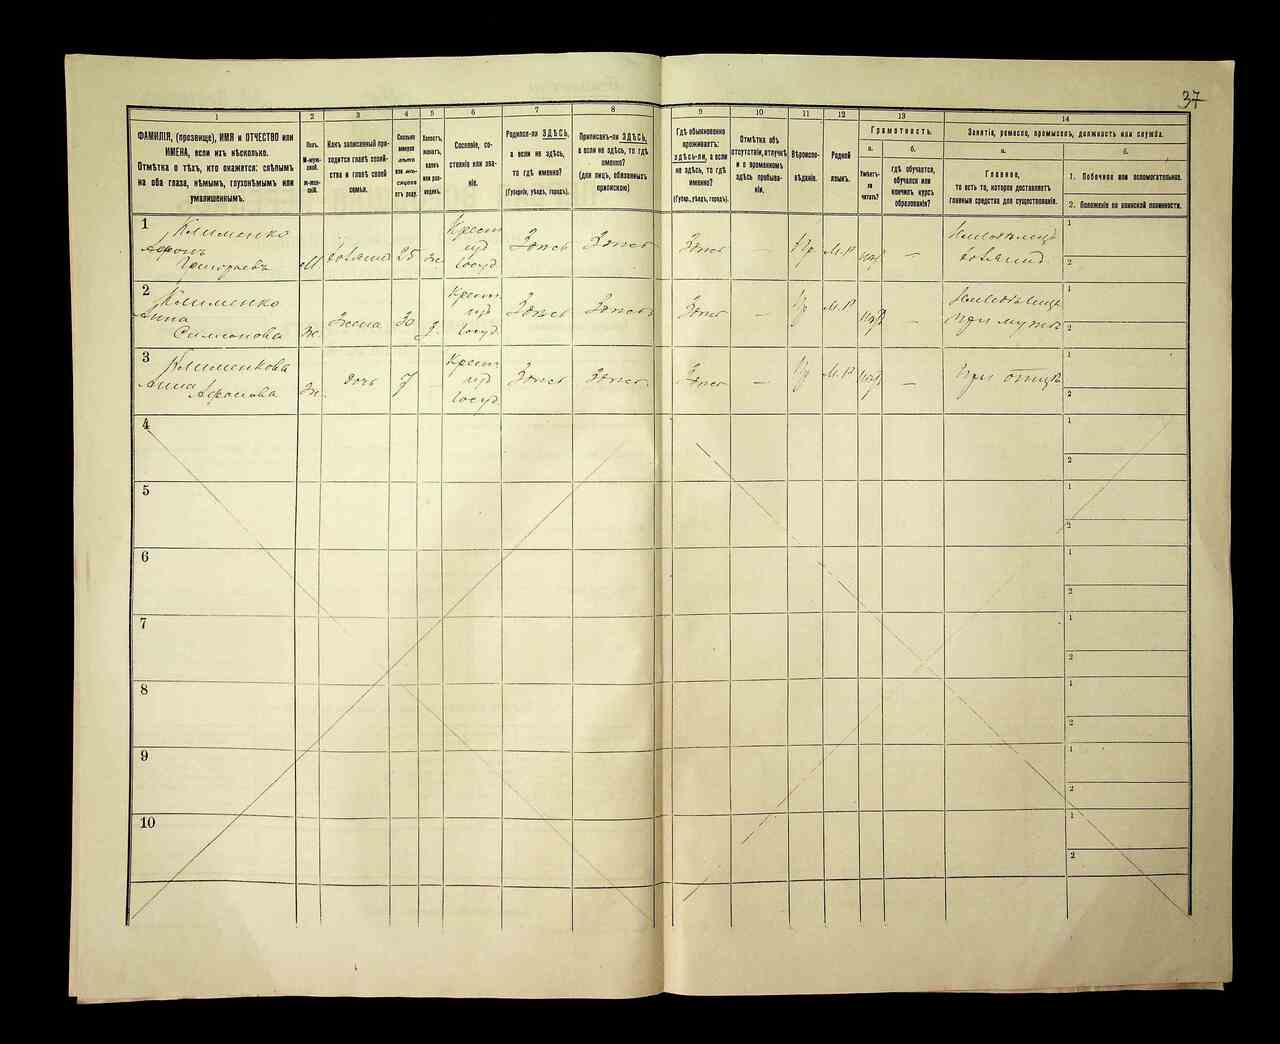 37
1
2
3
4
5
6
7
8
9
10
11
12
13
14
ФАМИЛІЯ, (прозвище), ИМЯ и ОТЧЕСТВО или
ИМЕНА, если ихъ нѣсколько.
Отмѣтка о тѣхъ, кто окажется: слѣпымъ
на оба глаза, нѣмымъ, глухонѣмымъ или
умалишеннымъ.
Полъ.
М-муж-
ской.
Ж-жен-
скій.
Какъ записанный при-
ходится главѣ хозяй-
ства и главѣ своей
семьи.
Сколько
минуло
лѣтъ
или мѣ-
сяцевъ
отъ роду.
Холостъ,
женатъ,
вдовъ
или раз-
веденъ.
Сословіе, со-
стояніе или зва-
ніе.
Родился-ли ЗДѢСЬ,
а если не здѣсь,
то гдѣ именно?
(Губернія, уѣздъ, городъ).
Приписанъ-ли ЗДѢСЬ,
а если не здѣсь, то гдѣ
именно?
(для лицъ, обязанныхъ
припиской)
Гдѣ обыкновенно
проживаетъ:
здѣсь-ли, а если
не здѣсь, то гдѣ
именно?
(Губер., уѣздъ, городъ).
Отмѣтка объ
отсутствіи, отлучкѣ
и о временномъ
здѣсь пребыва-
ніи.
Вѣроиспо-
вѣданіе.
Родной
языкъ.
Грамотность.
а.
б.
Умѣетъ-
ли
читать?
гдѣ обучается,
обучался или
кончилъ курсъ
образованія?
Занятіе, ремесло, промыселъ, должность или служба.
а.
б.
Главное,
то есть то, которое доставляетъ
главныя средства для существованія.
1. Побочное или вспомогательное.
2. Положеніе по воинской повинности.
1
Клименко
Григорьевъ
М
хозяинъ
25
ж.
Крест
изъ
госуд
Здѣсь
Здѣсь
Здѣсь
—
Пр
М.Р
нѣт
—
Земледѣлецъ
хозяинъ
1
2
2
Клименко
Анна
Симонова
Ж.
Жена
30
З.
Крест
изъ
госуд
Здѣсь
Здѣсь
Здѣсь
—
Пр
М.Р
нѣт
—
при мужѣ
1
2
3
Клименкова
Анна
Афонова
Ж.
дочь
7
—
Крест
изъ
госуд
Здѣсь
Здѣсь
Здѣсь
—
Пр
М.Р
нѣт
—
при отцѣ
1
2
4
1
2
5
1
2
6
1
2
7
1
2
8
1
2
9
1
2
10
1
2